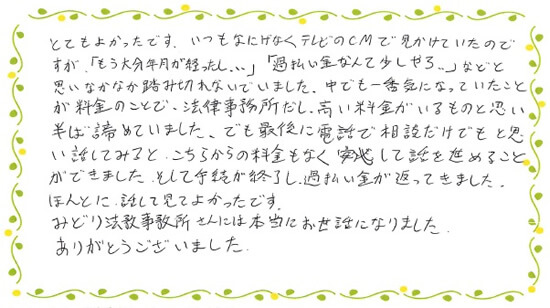 とてもよかったです。いつもなにげなくテレビのCMで見かけていたのです
が、「もう大分年月が経ったし、、、」「過払い金なんて少しやろ、、」などと
思いなかなか踏み切れないでいました。中でも一番気になっていたこと
が料金のことで、法律事務所だし、高い料金がいるものと思い
半ば諦めていました、でも最後に電話で相談だけでもと思
い話してみると、こちらからの料金もなく安心して話を進めること
ができました。そして手続が終了し、過払い金が返ってきました。
ほんとに、話して見てよかったです。
みどり法務事務所さんには本当にお世話になりました。
ありがとうございました。